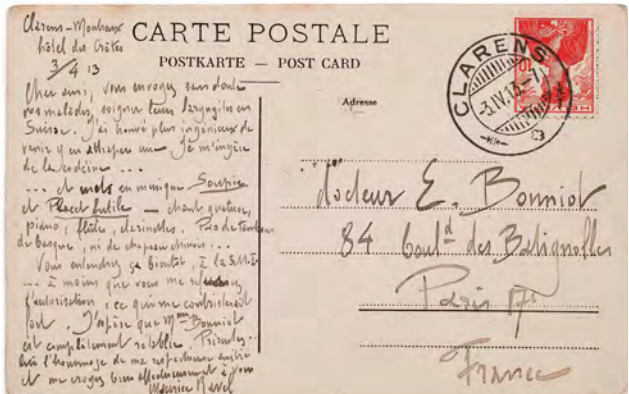 Clarens-Montreux
hôtel des Crêtes
3/4 13
CARTE POSTALE
POSTKARTE — POST CARD
Cher ami, vous envoyez sans doute
vos malades soigner leurs laryngites en
Suisse. J'ai trouvé plus ingénieux de
venir y en attraper une — Je m'ingère
de la codéine ...
... et mets en musique Soupir
et Placet futile — chant, quatuor,
piano, flûtes, clarinettes. Pas de tambour
de basque, ni de chapeau chinois ...
Vous entendrez ça bientôt, à la S.M.I.
... à moins que vous me
l'autorisation; ce qui me contristerait
fort. J'espère que Mme Bonniot
est complètement rétablie.
lui l'hommage de ma respectueuse amitié
et me croyez bien affectueusement à vous
Maurice Ravel
Adresse
docteur E. Bonniot
84 bould des Batignolles
Paris 17e
France
CLARENS
-3.IV.13.-
10